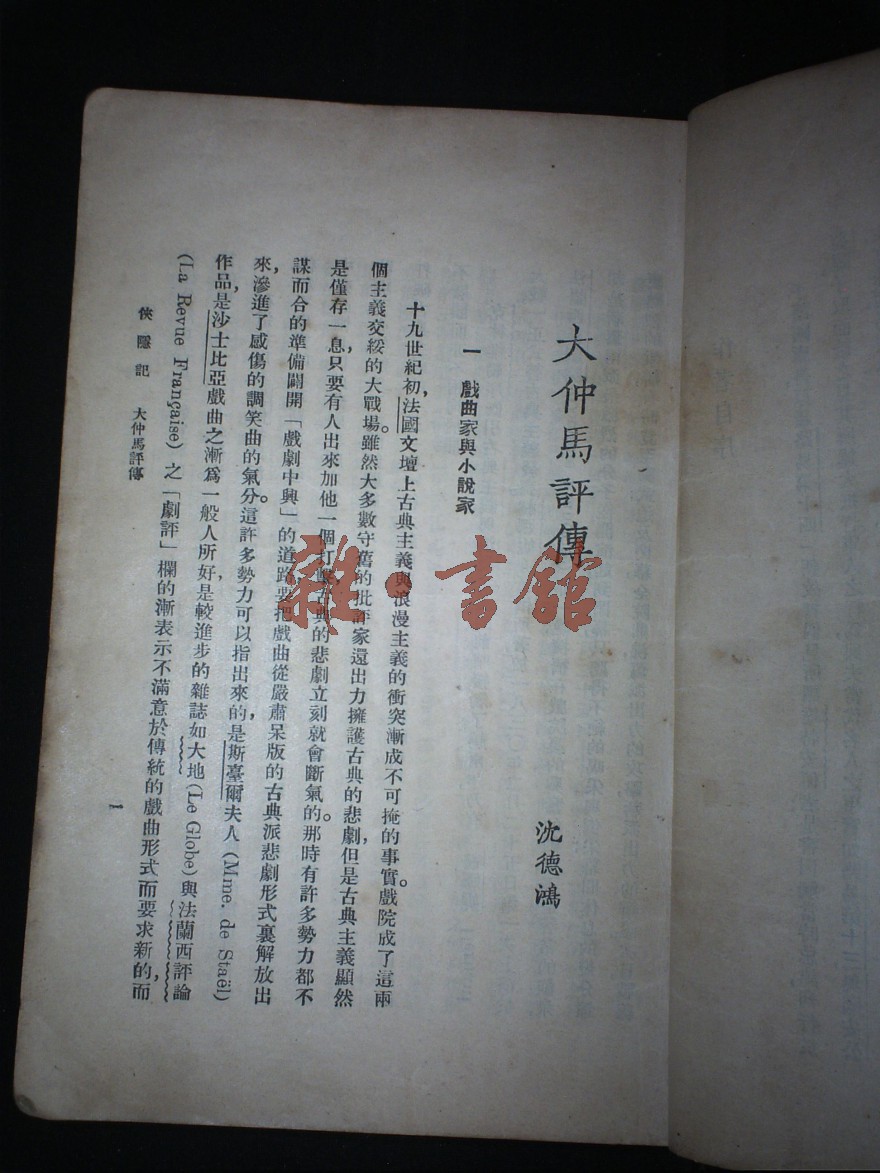 大仲馬評傳
沈德鴻
一 戲曲家與小說家
十九世紀初,法國文壇上古典主義與浪漫主義的衝突漸成不可掩的事實。戲院成了這兩
個主義交綏的大戰場。雖然大多數守舊的批評家還出力擁護古典的悲劇,但是古典主義顯然
是僅存一息,只要有人出來加他一個打擊,古典的悲劇立刻就會斷氣的。那時有許多勢力都不
謀而合的準備闢開「戲劇中興」的道路,要把戲曲從嚴肅呆版的古典派悲劇形式裏解放出
來,滲進了感傷的調笑曲的氣分。這許多勢力可以指出來的,是斯臺爾夫人(Mme. de Staël)
作品,是沙士比亞戲曲之漸為一般人所好,是較進步的雜誌如大地(Le Globe)與法蘭西評論
(La Revue Française)之「劇評」欄的漸表示不滿意於傳統的戲曲形式而要求新的,而
俠隱記 大仲馬評傳
1
雜·書館